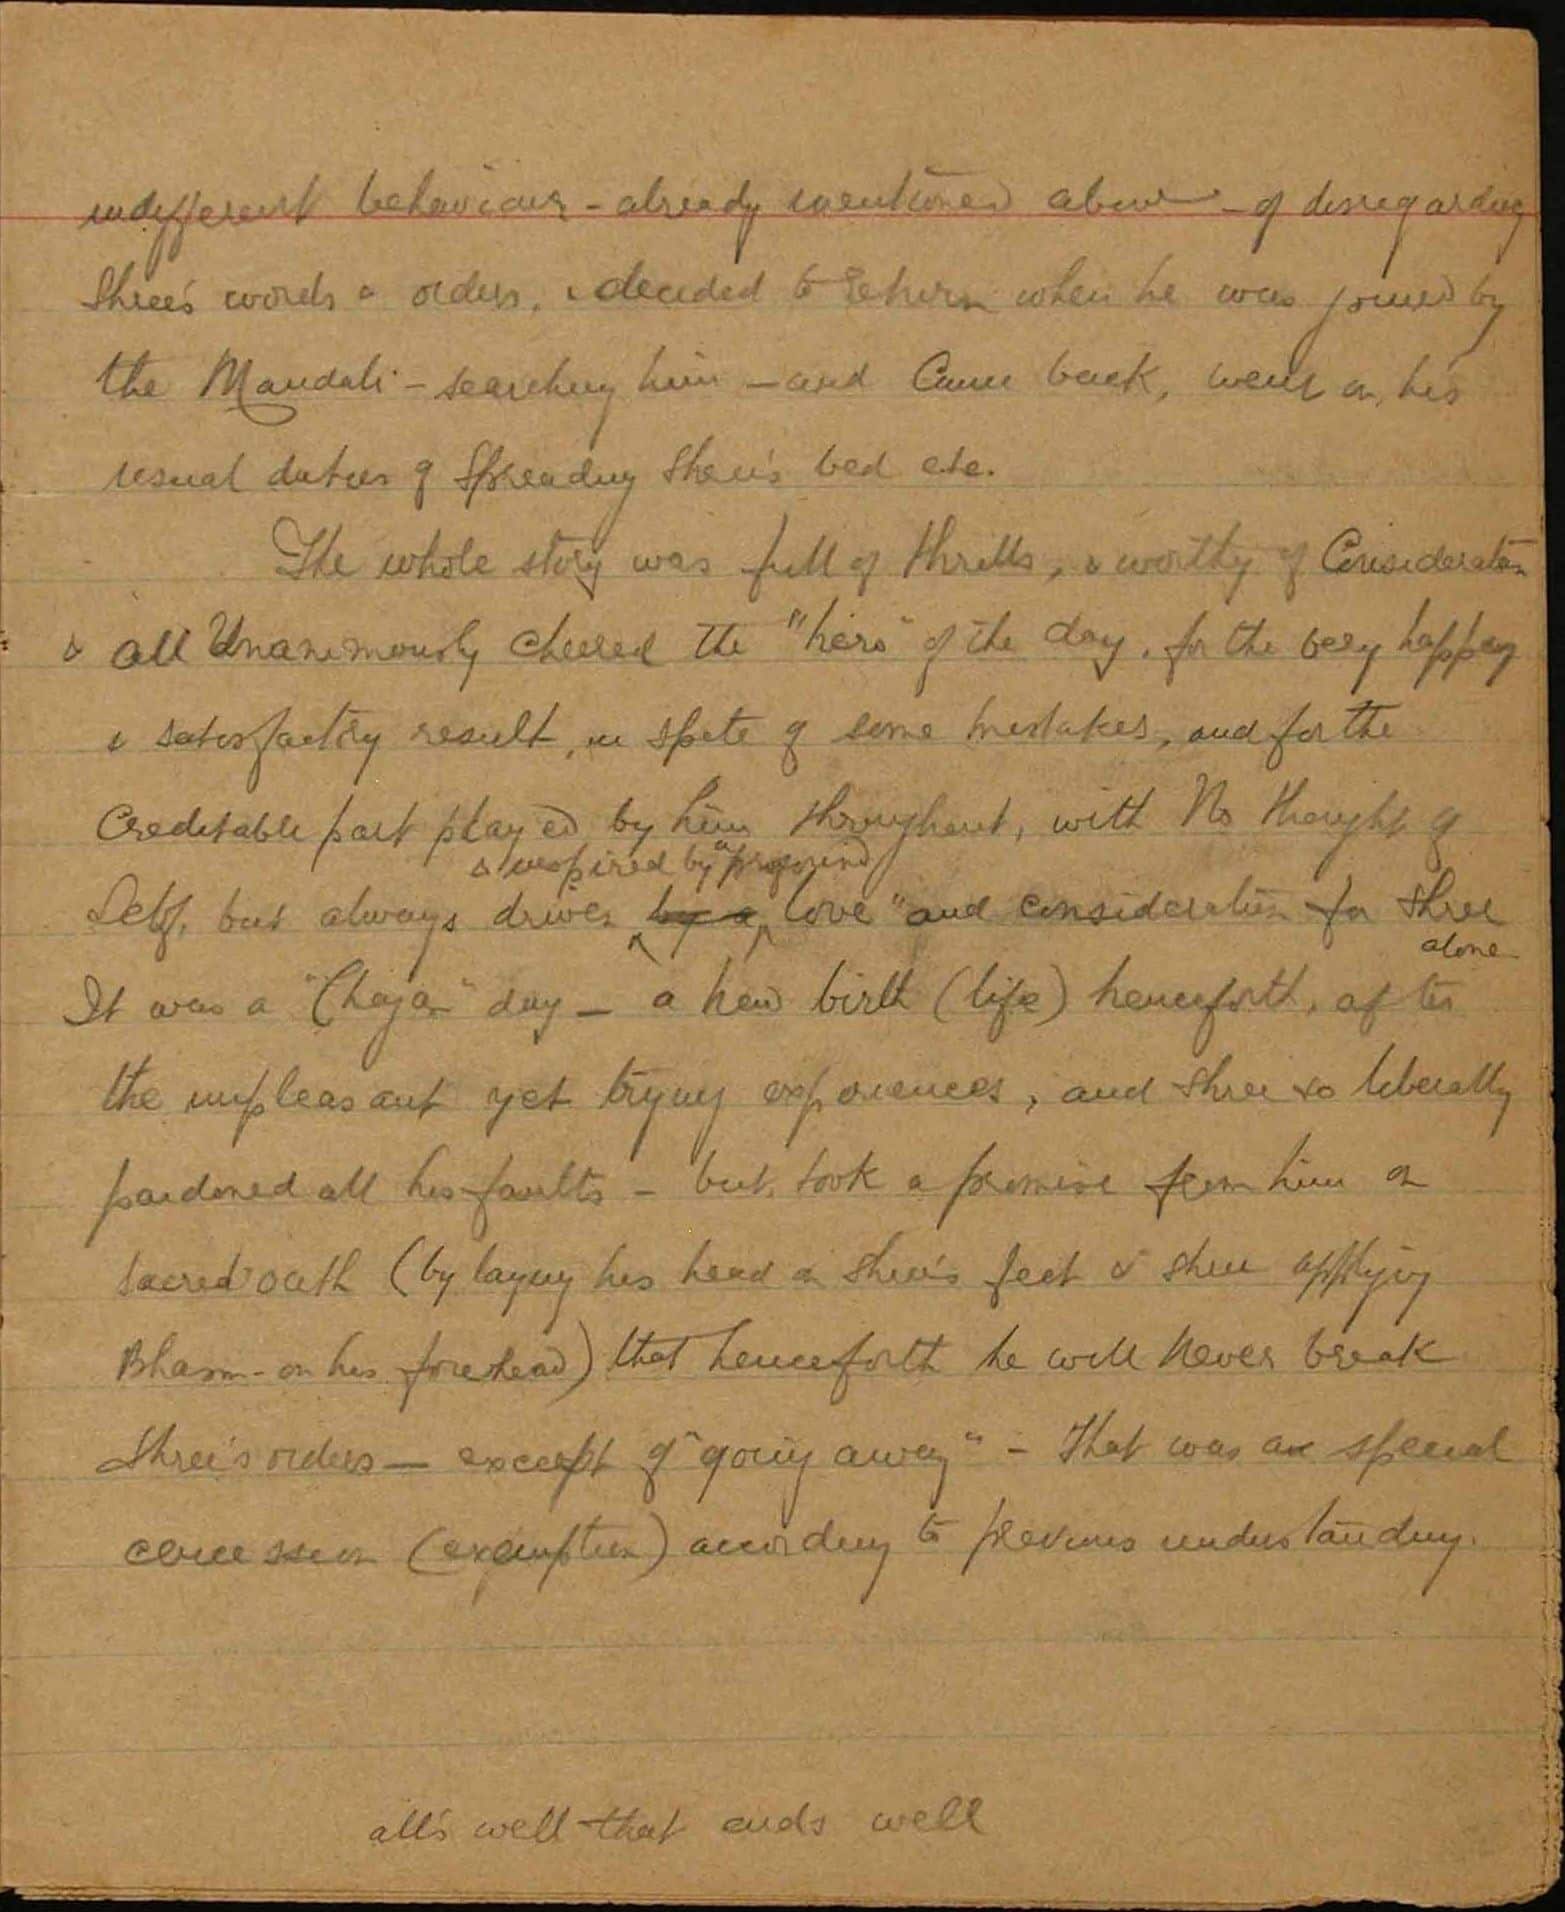 indifferent behaviour - already mentioned above - of disregarding
Shree's words & orders, & decided to return when he was joined by
the Mandali - searching him - and came back, went on his
usual duties of spreading Shree's bed etc.
The whole story was full of thrills, & worthy of Consideration
& all Unanimously cheered the "hero" of the day, for the very happy
& satisfactory result, in spite of some mistakes, and for the
Creditable part played by him throughout, with No thought of
& inspired by "profound
Self, but always driven by a love" and consideration for Shree
alone
It was a "Chaja" day - a new birth (life) henceforth, after
the unpleasant yet trying experiences, and Shree so liberally
pardoned all his faults - but took a promise from him on
sacred oath (by laying his head on Shree's feet & Shree applying
Bhasm - on his forehead) that henceforth he will Never break
Shree's orders - except of "going away" - That was a special
concession (exemption) according to previous understanding.
all's well that ends well